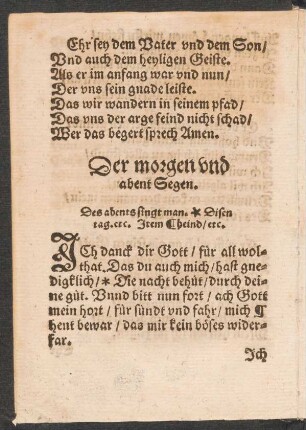 Ehr sey dem Vater vnd dem Son/
Vnd auch dem heyligen Geiste.
Als er im anfang war vnd nun/
Der vns sein gnade leiste.
Das wir wandern in seinem pfad/
Das vns der arge feind nicht schad/
Wer das begert sprech Amen.
Der morgen vnd
abent Segen.
Des abents singt man. * Disen
tag. etc. Item ¶ heind/ etc.
ICh danck dir Gott/ für all wol-
that. Das du auch mich/ hast gne-
digklich/ * Die nacht behüt/ durch dei-
ne güt. Vnnd bitt nun fort/ ach Gott
mein hort/ für sündt vnd fahr/ mich ¶
hent bewar/ das mir kein böses wider-
far.
Ich